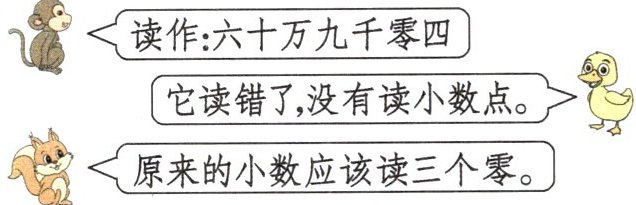 读作:六十万九千零四
它读错了,没有读小数点。
原来的小数应该读三个零。